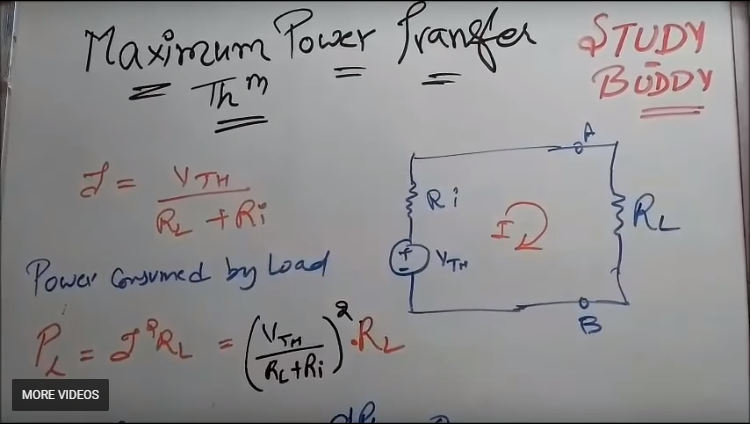 Maximum Power Transfer
Thm
STUDY
BUDDY
I = VTH / RL + Ri
Power Consumed by Load
PL = I²RL = (VTH / RL+Ri)² . RL
A
Ri
I
RL
+
-
VTH
B
MORE VIDEOS